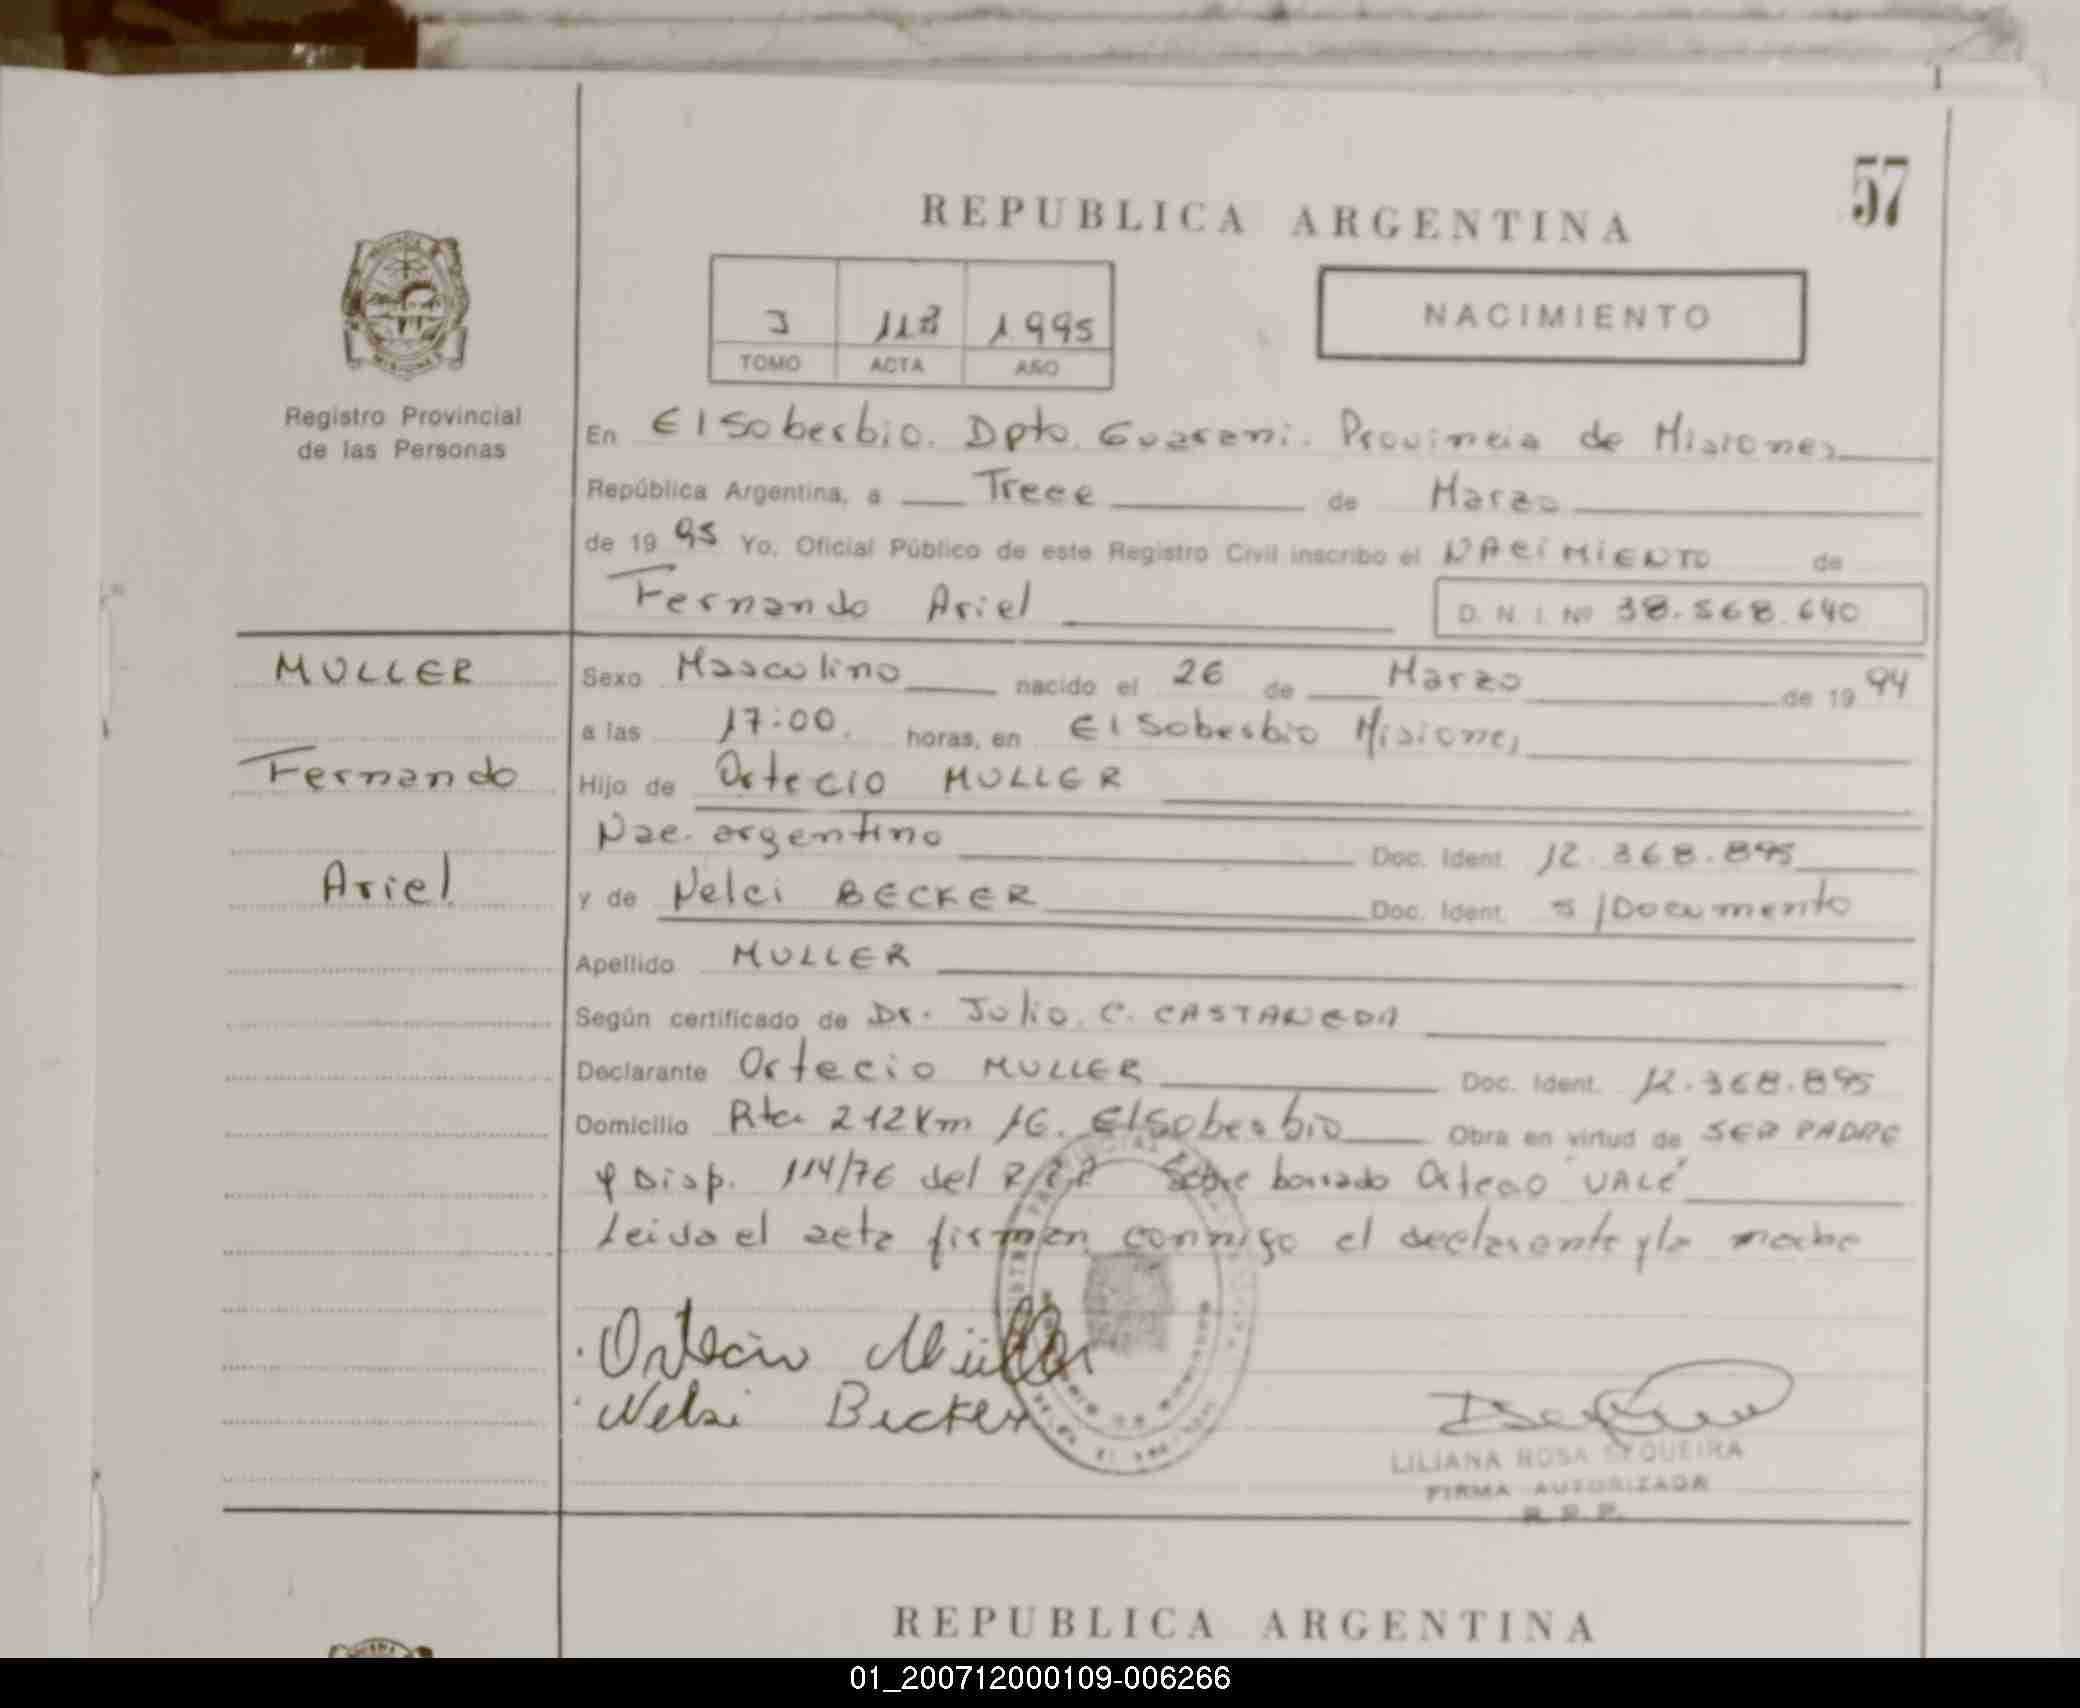 57
REPUBLICA ARGENTINA
NACIMIENTO
1995
TOMO ACTA AÑO
Registro Provincial
de las Personas
En El Soberbio. Dpto. Guarani. Provincia de Misiones
República Argentina, a Trece de Marzo
de 1995 Yo, Oficial Público de este Registro Civil inscribo el NACIMIENTO de
Fernando Ariel D. N. I. Nº 38.568.640
MULLER
Fernando
Ariel
Sexo Masculino nacido el 26 de Marzo de 1994
a las 17:00. horas, en El Soberbio Misiones
Hijo de Ortecio MULLER
Nac. argentino Doc. Ident. 12.368.895
y de Nelci BECKER Doc. Ident. s/Documento
Apellido MULLER
Según certificado de Dr. Julio. C. CASTAÑEDA
Declarante Ortecio MULLER Doc. Ident. 12.368.895
Domicilio Rta 212 Km 16. El Soberbio Obra en virtud de SER PADRE
y Disp. 114/76 del R.P.P. Sobre borrado Ortecio "VALE"
Leida el acta firman conmigo el declarante y la madre
Ortecio Müller
Nelsi Becker
LILIANA ROSA SEQUEIRA
FIRMA AUTORIZADA
R.P.P.
REPUBLICA ARGENTINA
01_200712000109-006266